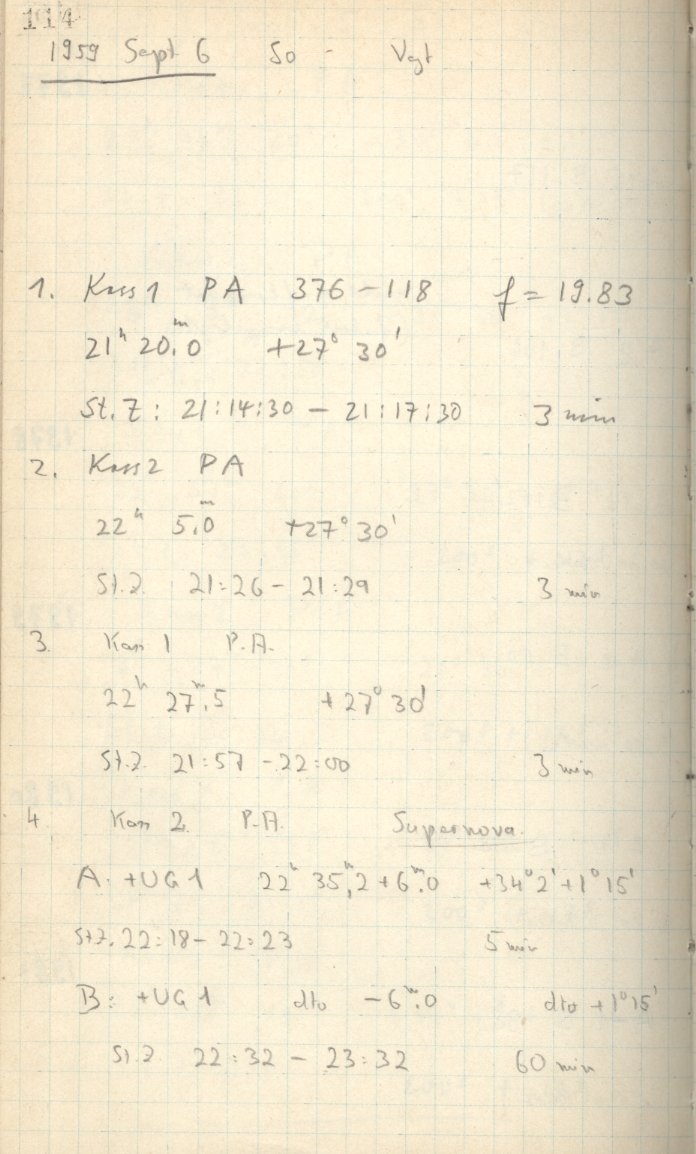 114
1959 Sept 6 So - Vogt
1. Kass 1 PA 376-118 f = 19.83
21ʰ 20ᵐ.0 +27° 30'
St. Z: 21:14:30 – 21:17:30 3 min
2. Kass 2 PA
22ʰ 5ᵐ.0 +27° 30'
St. Z. 21:26 - 21:29 3 min
3. Kass 1 P.A.
22ʰ 27ᵐ.5 +27° 30'
St. Z. 21:57 - 22:00 3 min
4 Kass 2. P.A. Supernova.
A: +UG1 22ʰ 35ᵐ,2 + 6ᵐ.0 +34° 2' + 1° 15'
St. Z. 22:18 - 22:23 5 min
B: +UG1 dto - 6ᵐ.0 dto + 1° 15'
St. Z 22:32 - 23:32 60 min